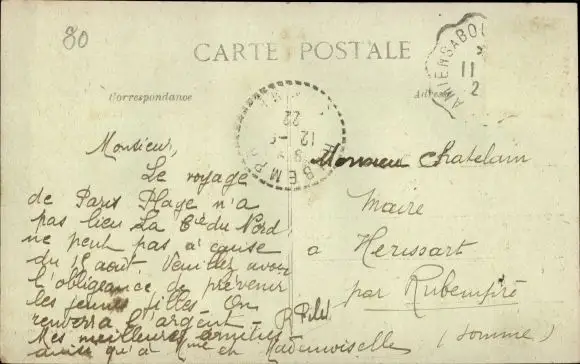 80
CARTE POSTALE
Correspondance
Adresse
AMIENS ABB
11
2
RUBEMPRÉ
12 -
22
Monsieur,
Le voyage
de Paris Plage n'a
pas lieu La Cie du Nord
ne peut pas à cause
du 15 août Veuillez avoir
l'obligeance de prévenir
les jeunes filles On
renverra l'argent
Mes meilleures amitiés
ainsi qu'à Mme et Mademoiselle
R Pilet
Monsieur Chatelain
Maire
a Herissart
par Rubempré
(Somme)